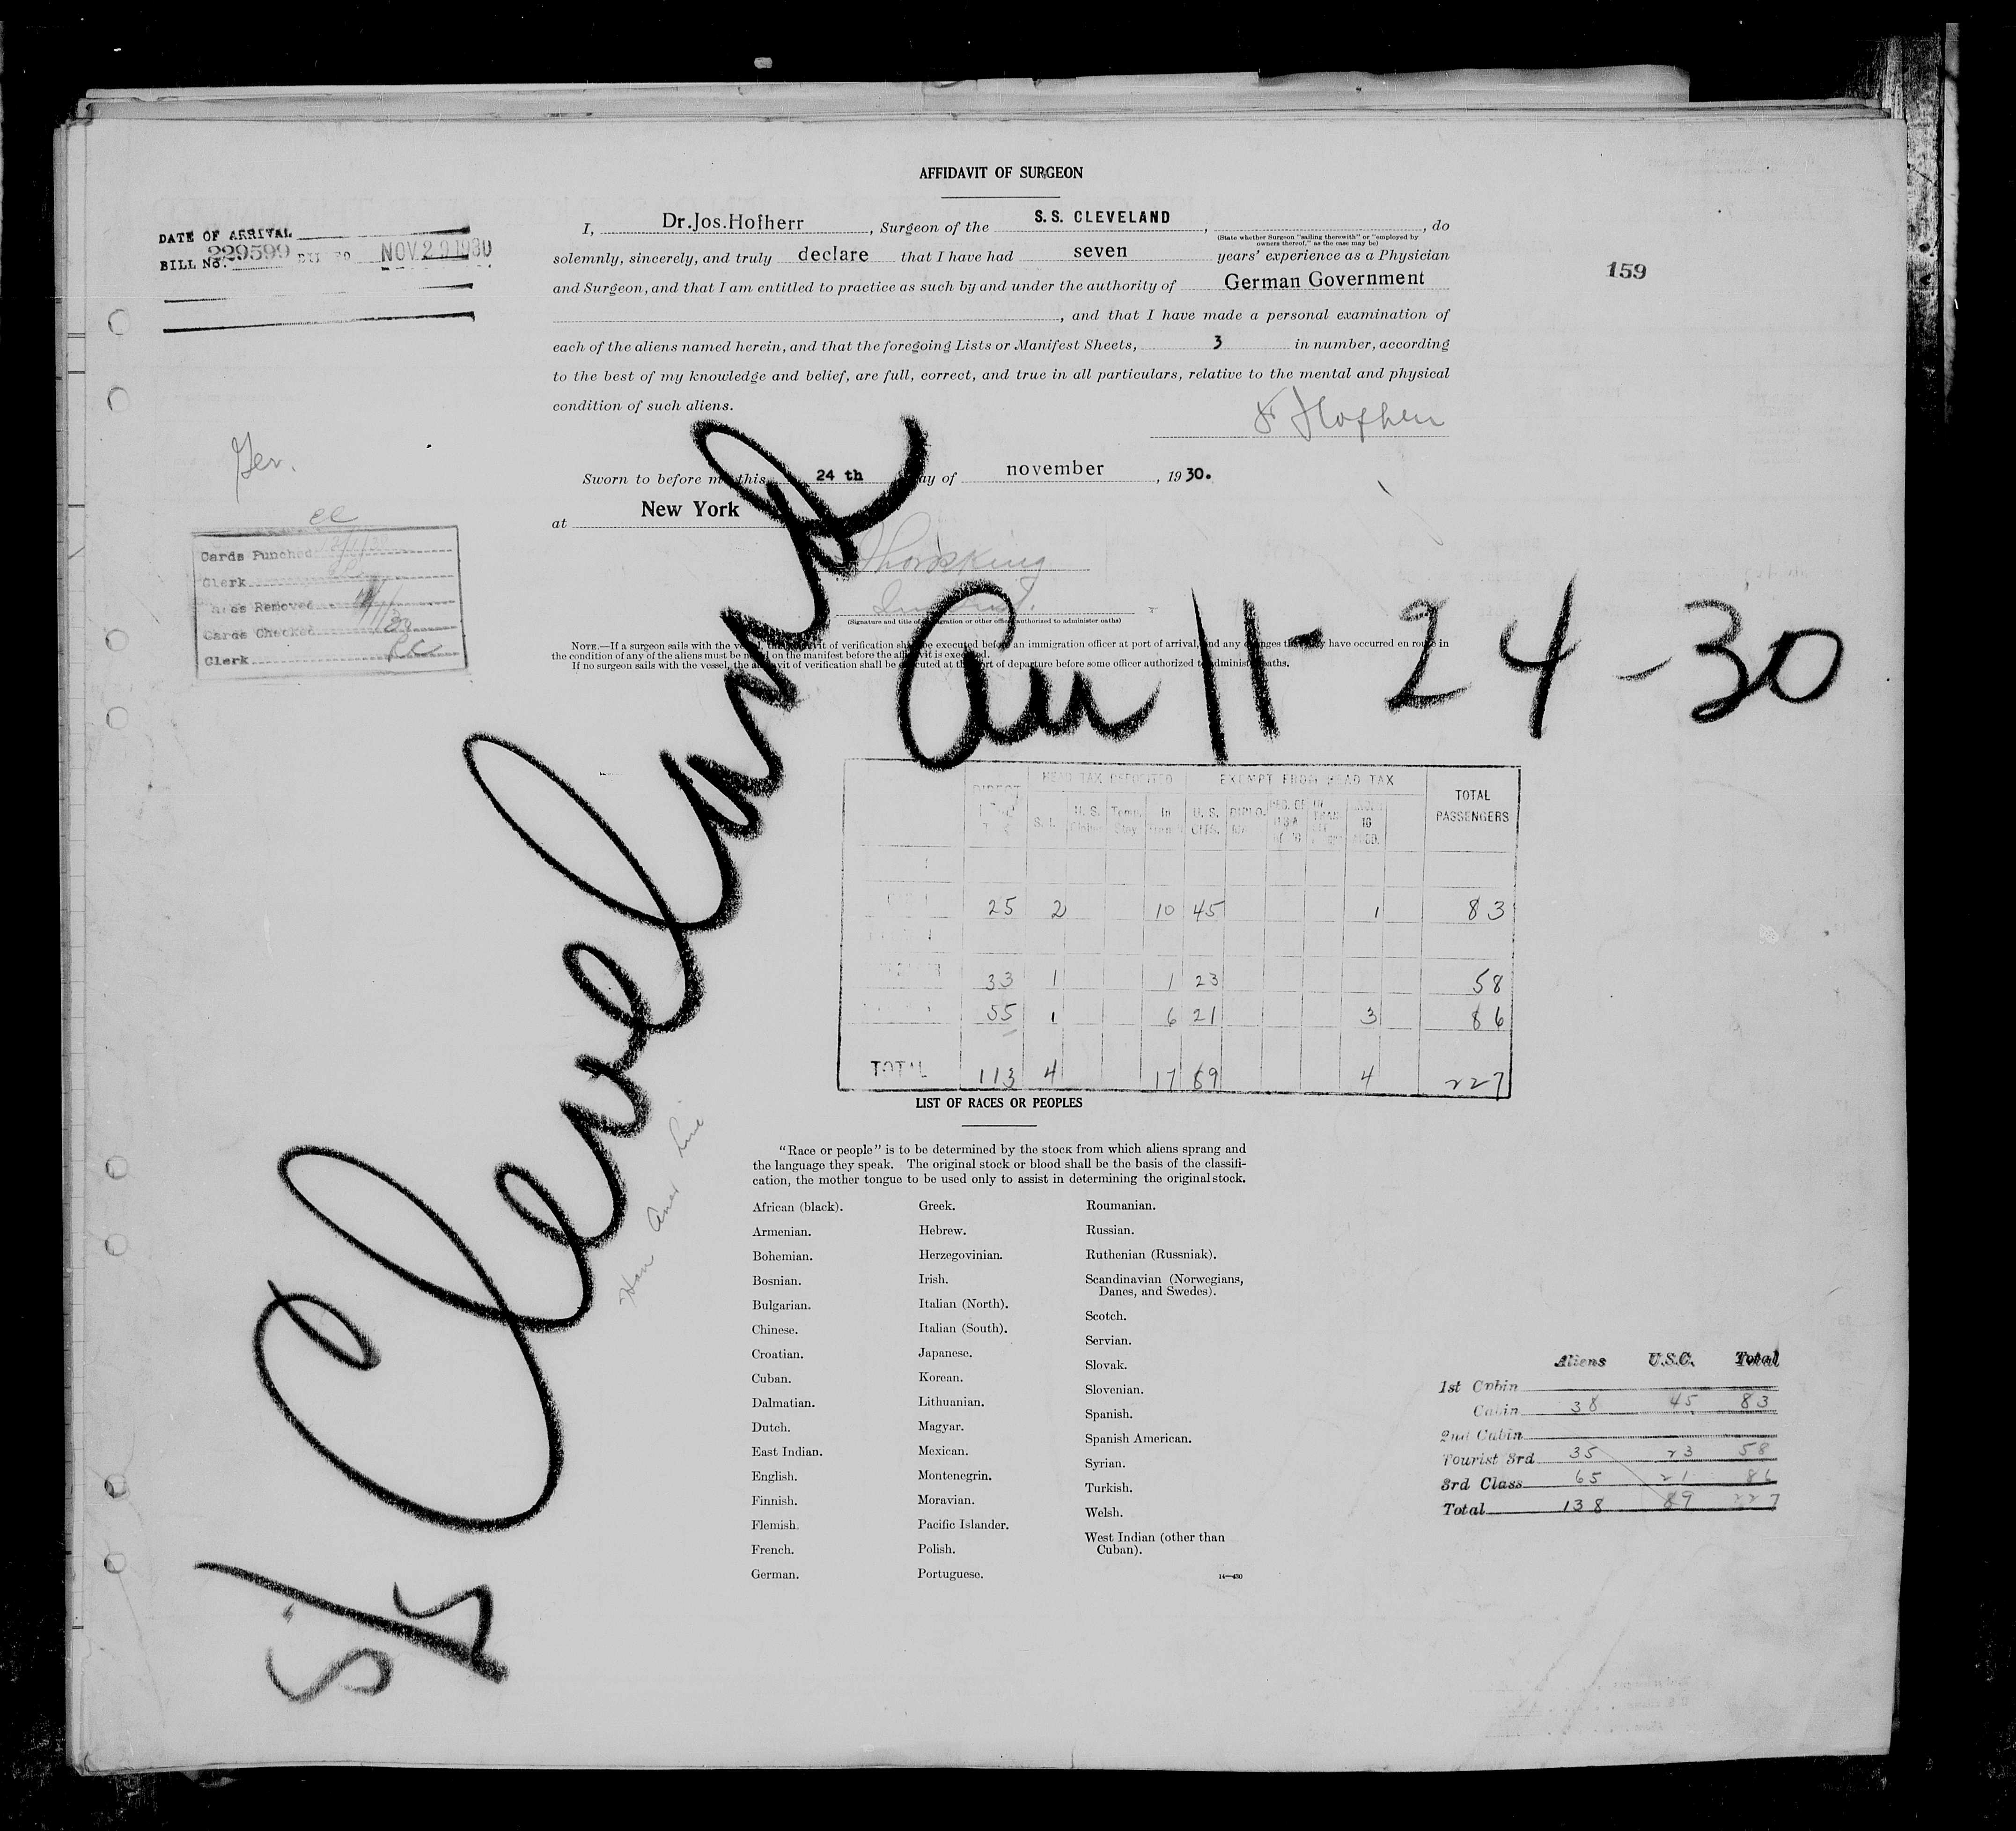 AFFIDAVIT OF SURGEON
DATE OF ARRIVAL
BILL No. 229599 NOV 29 1930
159
I, Dr.Jos.Hofherr, Surgeon of the S. S. CLEVELAND, , do
(State whether Surgeon "sailing therewith" or "employed by
owners thereof," as the case may be)
solemnly, sincerely, and truly declare that I have had seven years' experience as a Physician
and Surgeon, and that I am entitled to practice as such by and under the authority of German Government
, and that I have made a personal examination of
each of the aliens named herein, and that the foregoing Lists or Manifest Sheets, 3 in number, according
to the best of my knowledge and belief, are full, correct, and true in all particulars, relative to the mental and physical
condition of such aliens.
Dr Hofherr
Ger.
Sworn to before me this 24 th day of november, 1930.
at New York
Cards Punched
Clerk
Removed
Cards Checked
Clerk
(Signature and title of immigration or other officer authorized to administer oaths)
NOTE.—If a surgeon sails with the vessel, the affidavit of verification shall be executed before an immigration officer at port of arrival, and any changes that may have occurred en route in
the condition of any of the aliens must be noted on the manifest before the affidavit is executed.
If no surgeon sails with the vessel, the affidavit of verification shall be executed at the port of departure before some officer authorized to administer oaths.
S/S Cleveland
Arr 11-24-30
Han Amer Line
HEAD TAX DEPOSITED EXEMPT FROM HEAD TAX TOTAL PASSENGERS
DIRECT S.I. U. S. Temp. Stay In U. S. CITS. DIPLO. 
25 2 10 45 1 83
33 1 1 23 58
55 1 6 21 3 86
TOTAL 113 4 17 89 4 227
LIST OF RACES OR PEOPLES
"Race or people" is to be determined by the stock from which aliens sprang and
the language they speak. The original stock or blood shall be the basis of the classifi-
cation, the mother tongue to be used only to assist in determining the original stock.
African (black).
Armenian.
Bohemian.
Bosnian.
Bulgarian.
Chinese.
Croatian.
Cuban.
Dalmatian.
Dutch.
East Indian.
English.
Finnish.
Flemish.
French.
German.
Greek.
Hebrew.
Herzegovinian.
Irish.
Italian (North).
Italian (South).
Japanese.
Korean.
Lithuanian.
Magyar.
Mexican.
Montenegrin.
Moravian.
Pacific Islander.
Polish.
Portuguese.
Roumanian.
Russian.
Ruthenian (Russniak).
Scandinavian (Norwegians,
Danes, and Swedes).
Scotch.
Servian.
Slovak.
Slovenian.
Spanish.
Spanish American.
Syrian.
Turkish.
Welsh.
West Indian (other than
Cuban).
14—430
Aliens U.S.C. Total
1st Cabin
Cabin 38 45 83
2nd Cabin
Tourist 3rd 35 23 58
3rd Class 65 21 86
Total 138 89 227